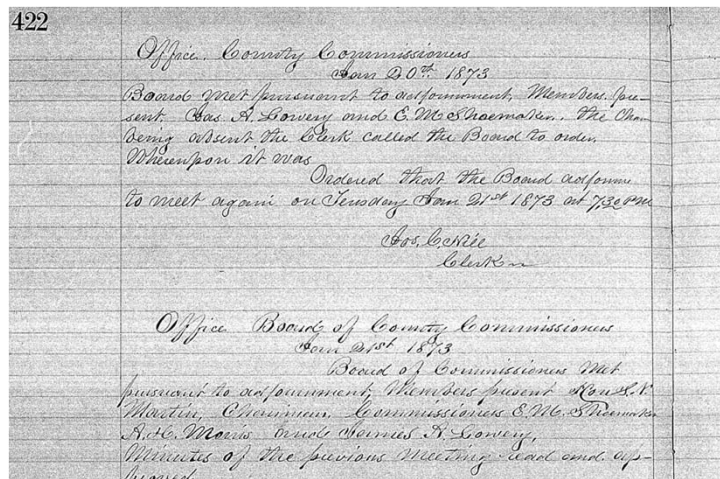 422
Office. County Commissioners
Jan 20th 1873
Board met pursuant to adjournment, Members pre-
sent, Jas. A. Lowery and E. M. Shoemaker. the Chan
being absent the Clerk called the Board to order,
Whereupon it was
Ordered that the Board adjourne
to meet again on Teusday Jan 21st 1873 at 7,30 PM
Jos. C. Hill
Clerk
Office Board of County Commissioners
Jan 21st 1873
Board of Commissioners Met
pursuant to adjournment, Members present Hon S. N.
Martin, Chairman, Commissioners E. M. Shoemaker
A. H. Morris and James A. Lowery,
Minutes of the previous Meeting read and ap-
proved